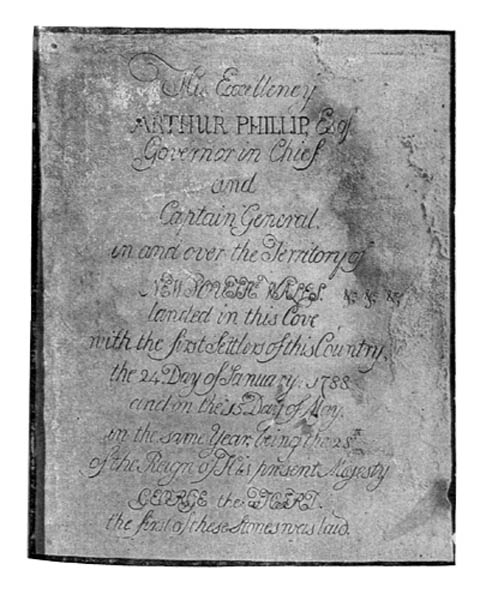 His Excellency
ARTHUR PHILLIP Esq
Governor in Chief
and
Captain General.
in and over the Territory of
NEW SOUTH WALES. &c &c &c
landed in this Cove,
with the first Settlers of this Country,
the 24 Day of January, 1788.
and on the 15 Day of May.
in the same Year, being the 28th
of the Reign of His present Majesty
GEORGE the THIRD.
the first of these Stones was laid.